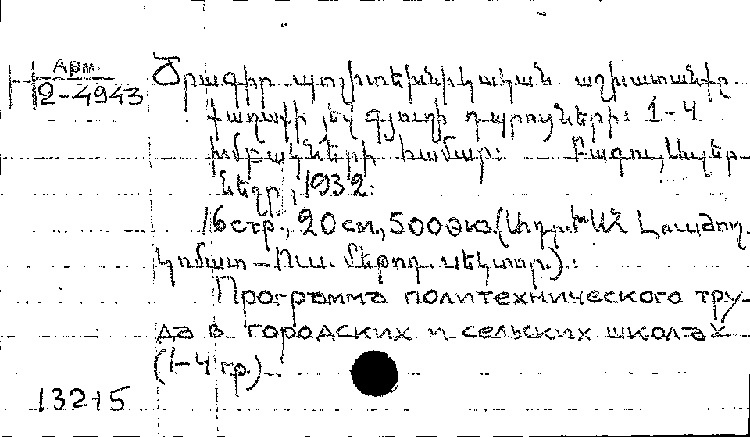 Арм.
2-4943
Ծրագիր պոլիտեխնիկական աշխատանքի
քաղաքի յեվ գյուղի դպրոցների: 1-4
խմբակների համար: Բագու, Ազեր
նեշր, 1932:
16 стр., 20 см, 500 экз. (Ադր. ԽՍՀ Լուսժող.
կոմատ – Ուս. մեթոդ. սեկտոր.):
Программа политехнического тру-
да в городских и сельских школах
(1-4 гр).
13215